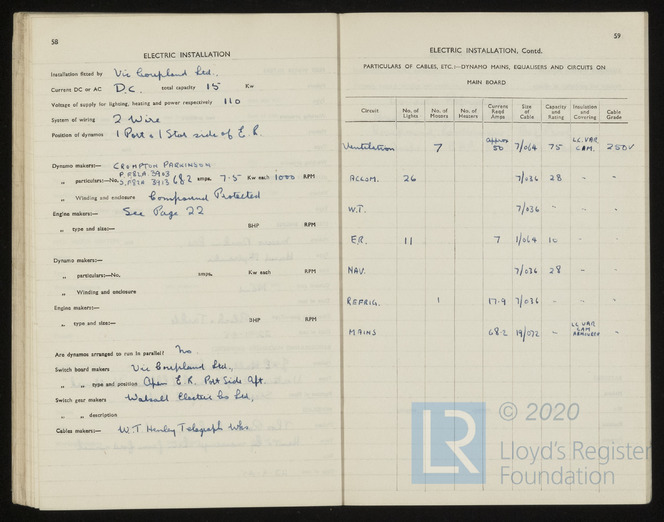 58
ELECTRIC INSTALLATION
Installation fitted by Vic Coupland Ltd.
Current DC or AC D.C. total capacity 15 Kw
Voltage of supply for lighting, heating and power respectively 110
System of wiring 2 Wire
Position of dynamos 1 Port & 1 Star side of E.R.
Dynamo makers:— CROMPTON PARKINSON
P.
„ particulars:—No. 3913 68.2 amps. 7.5 Kw each 1000 RPM
„ Winding and enclosure Compound Protected
Engine makers:— See Page 22
„ type and size:— BHP RPM
Dynamo makers:—
„ particulars:—No. amps. Kw each RPM
„ Winding and enclosure
Engine makers:—
„ type and size:— BHP RPM
Are dynamos arranged to run in parallel? No.
Switch board makers Vic Coupland Ltd.,
„ „ type and position Open E.R. Port Side Aft.
Switch gear makers Walsall Electric Co Ltd,
„ „ description
Cables makers:— W.T Henley Telegraph Wks
59
ELECTRIC INSTALLATION, Contd.
PARTICULARS OF CABLES, ETC.:—DYNAMO MAINS, EQUALISERS AND CIRCUITS ON
MAIN BOARD
Circuit No. of Lights No. of Motors No. of Heaters Current Read Amps Size of Cable Capacity and Rating Insulation and Covering Cable Grade
Ventilation 7 approx 50 7/064 75 LC. VAR CAM. 250V
ACCOM. 26 7/036 28 " "
W.T. 7/036 " " "
E.R. 11 7 1/064 10 " "
NAV. 7/036 28 " "
REFRIG. 1 17.9 7/036 " " "
MAINS 68.2 19/072 " LC VAR CAM ARMOURED "
© 2020
LR
Lloyd's Register
Foundation